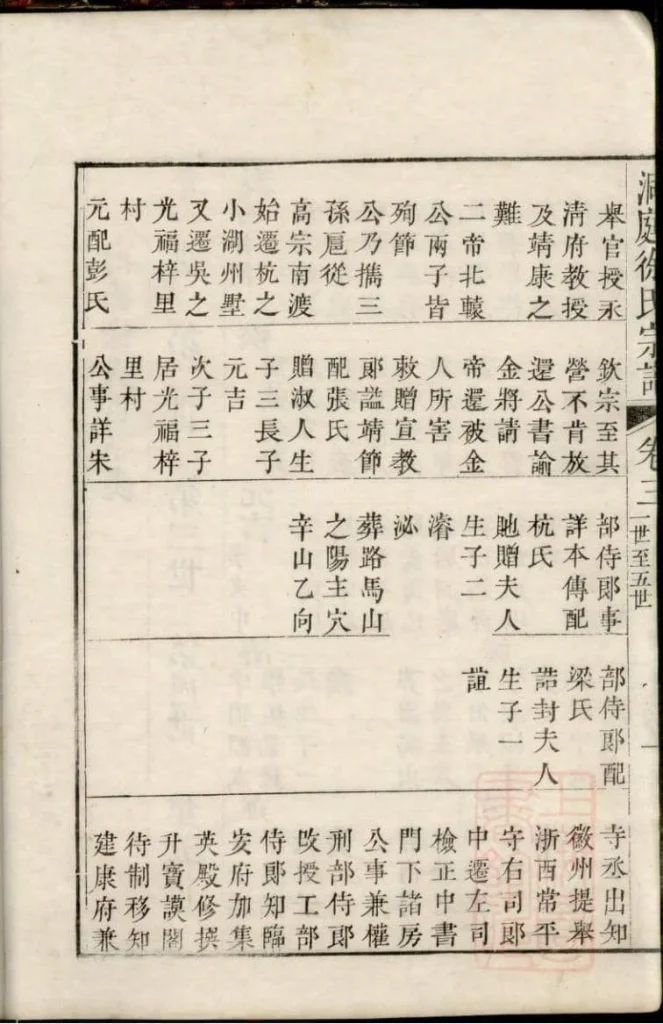 洞庭徐氏宗譜
卷三
一世至五世
舉官授承
淸府教授
及靖康之
難
二帝北轅
公兩子皆
殉節
公乃攜三
孫扈從
高宗南渡
始遷杭之
小湖州墅
又遷吳之
光福梓里
村
元配彭氏
欽宗至其
營不肯放
還公書諭
金將請
帝還被金
人所害
敕贈宣教
郞謚靖節
配張氏
贈淑人生
子三長子
元吉
次子三子
居光福梓
里村
公事詳朱
部侍郞事
詳本傳配
杭氏
貤贈夫人
生子二
濬
泌
葬路馬山
之陽主穴
辛山乙向
部侍郞配
梁氏
誥封夫人
生子一
誼
寺丞出知
徽州提舉
浙西常平
守右司郞
中遷左司
檢正中書
門下諸房
公事兼權
刑部侍郞
改授工部
侍郞知臨
安府加集
英殿修撰
升寶謨閣
待制移知
建康府兼